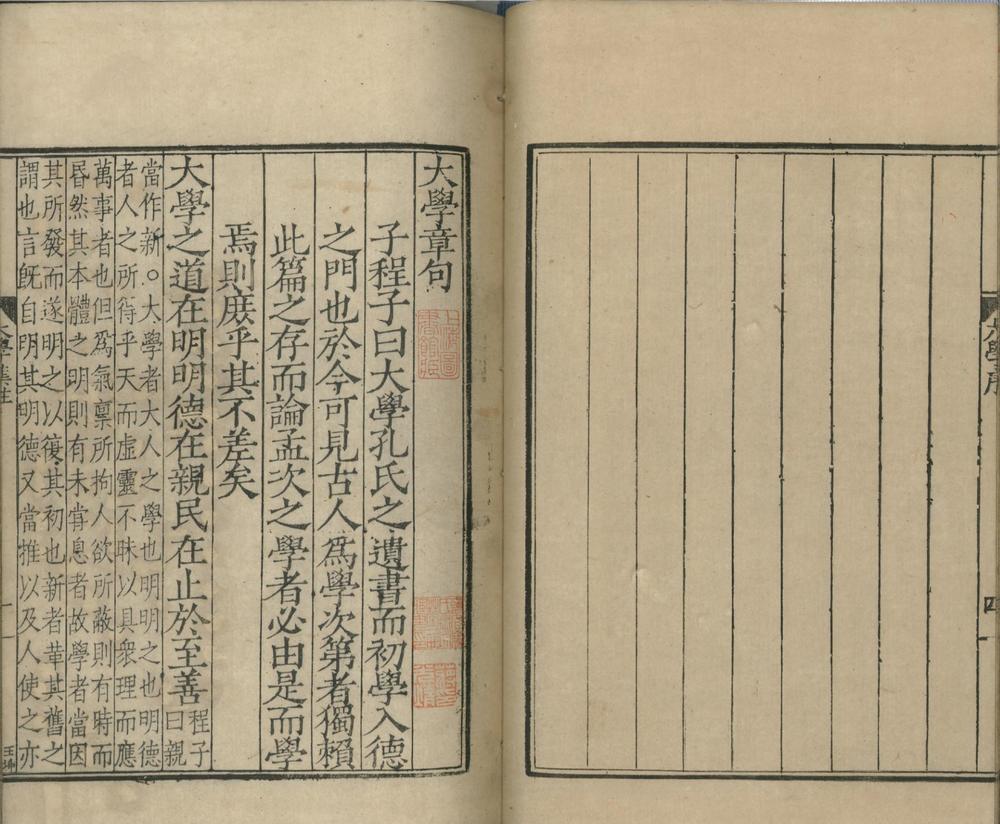 大學序
四
大學章句
上海圖
書館藏
子程子曰大學孔氏之遺書而初學入德
之門也於今可見古人爲學次第者獨賴
此篇之存而論孟次之學者必由是而學
焉則庻乎其不差矣
大學之道在明明德在親民在止於至善
程子
曰親
當作新○大學者大人之學也明明之也明德
者人之所得乎天而虛靈不昧以具衆理而應
萬事者也但爲氣稟所拘人欲所蔽則有時而
昏然其本體之明則有未嘗息者故學者當因
其所發而遂明之以復其初也新者革其舊之
謂也言旣自明其明德又當推以及人使之亦
大學集註
一